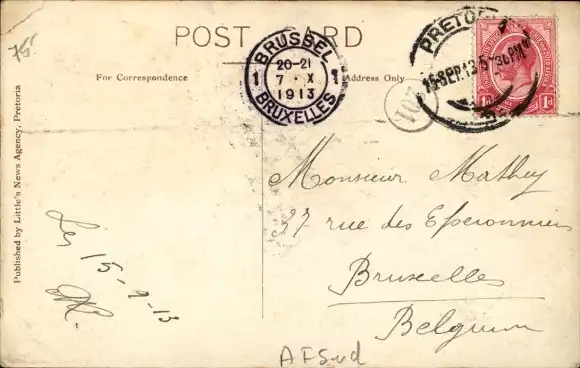 75
POST CARD
For Correspondence
Address Only
BRUSSEL
1 20-21 1
7 · X
1913
BRUXELLES
PRETORIA
15 SEP 13 5 30 PM
1d 1d
101
Monsieur Mathey
37 rue des Eperonniers
Bruxelles
Belgium
Published by Little's News Agency, Pretoria
15-9-13
AFSud